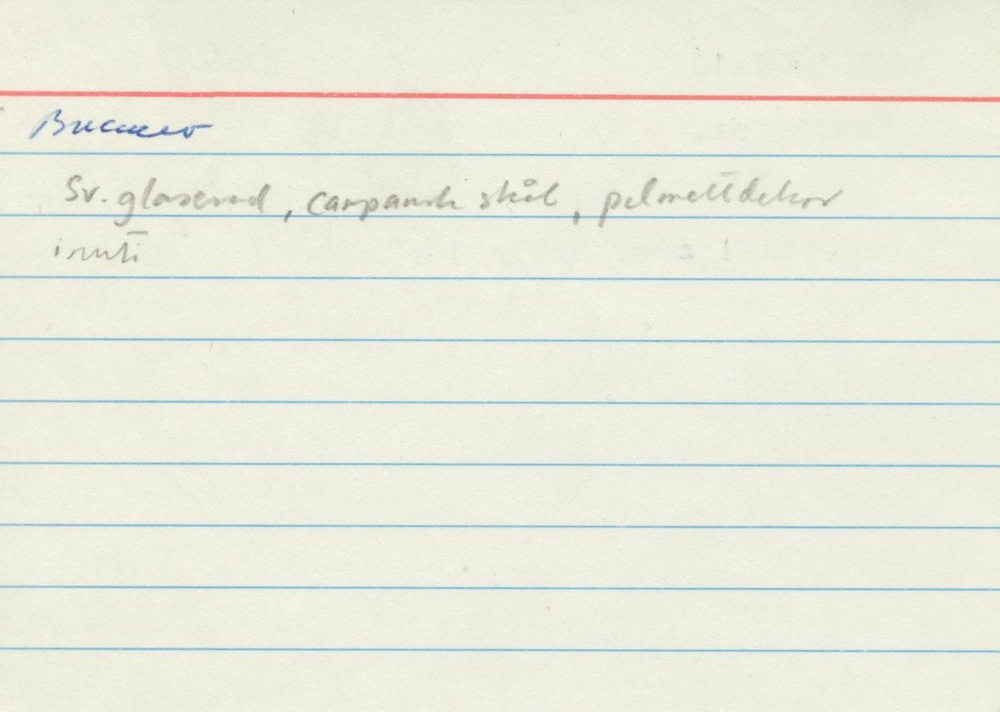 Bucchero
Sv. glaserad, campansk skål, palmettdekor
inuti